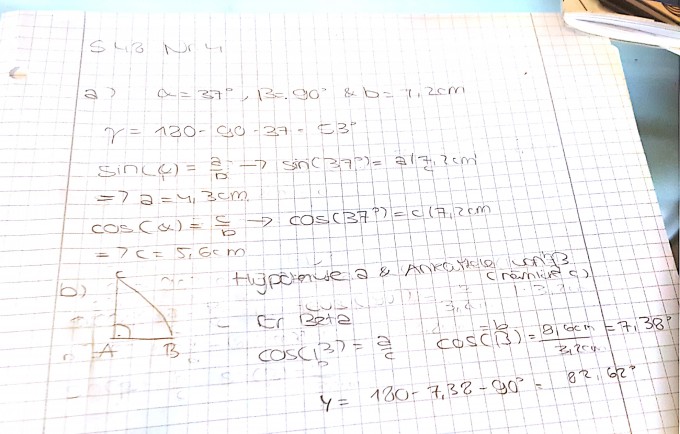 S 43 Nr 4
a) α = 37°, B = 90° & b = 7,2cm
γ = 180 - 90 - 37 = 53°
sin(α) = a/b → sin(37°) = a/7,2cm
=> a = 4,3cm
cos(α) = c/b → cos(37°) = c/7,2cm
=> c = 5,6cm
b) C A B
Hypotenuse a & Ankathete von β
(nämlich c)
- Beta
cos(β) = a/c cos(β) = 8,6cm/3,2cm = 7,38°
γ = 180 - 7,38 - 90° = 82,62°